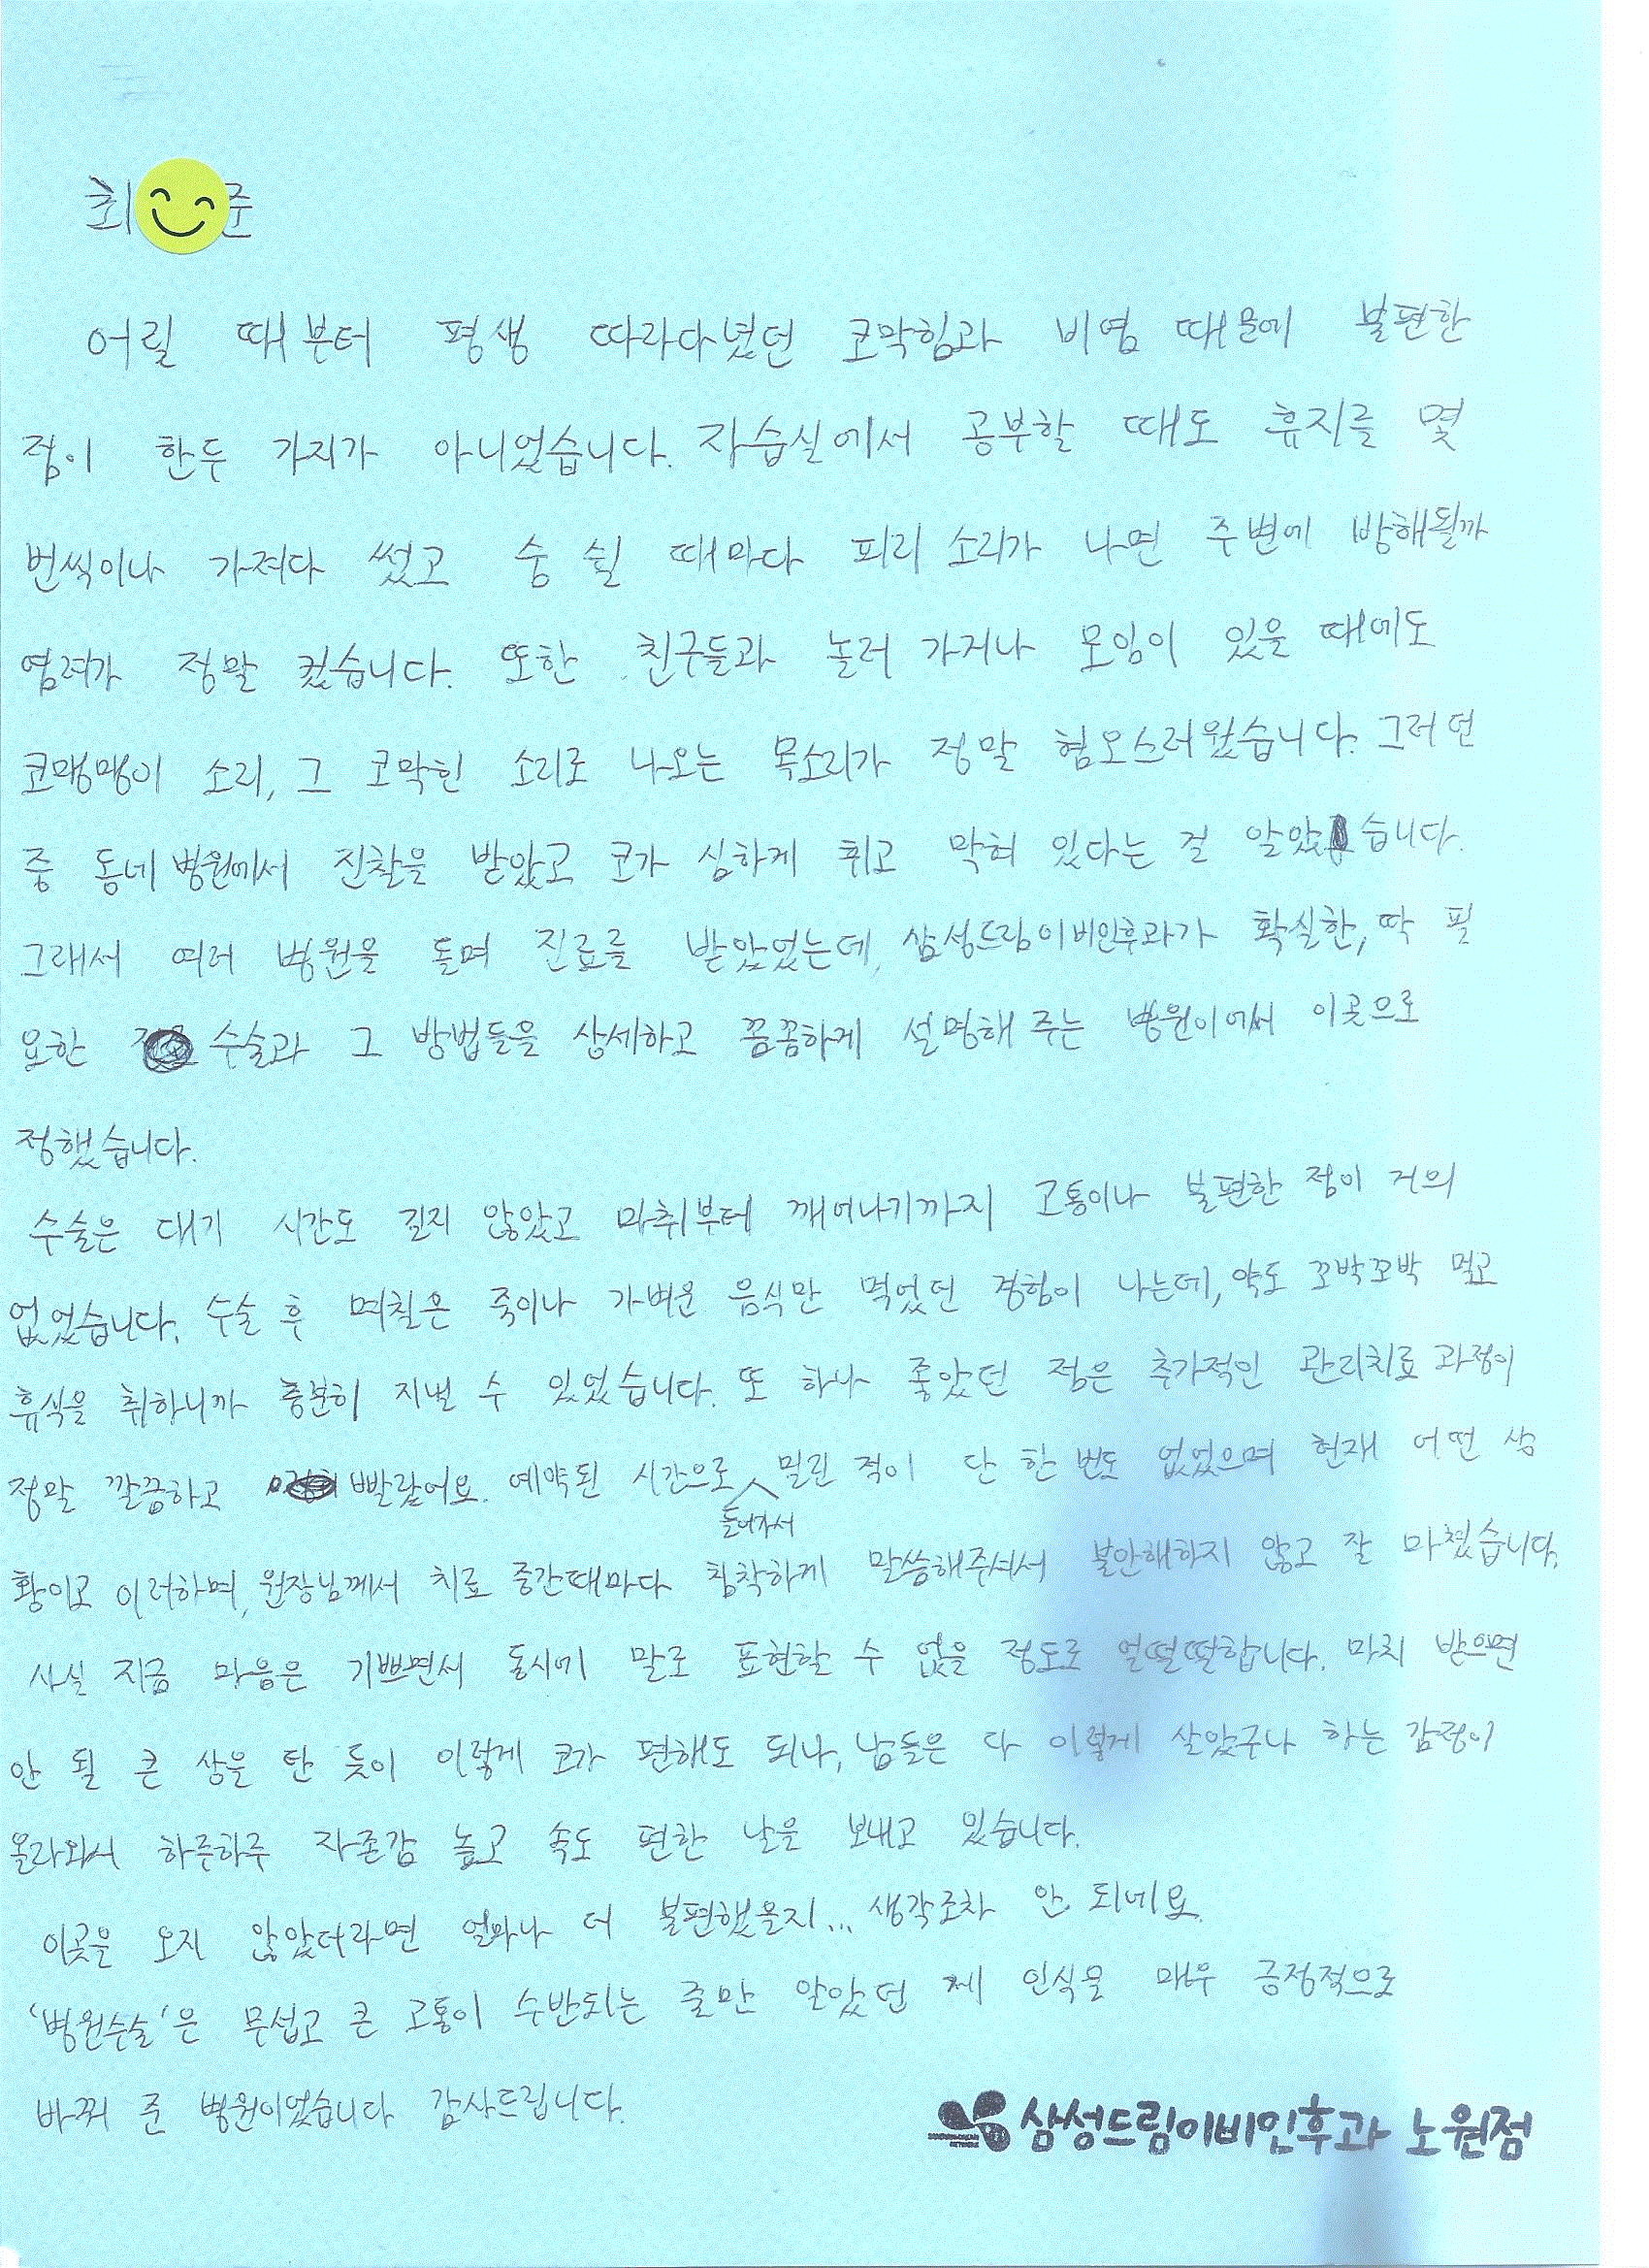 최 준
어릴 때부터 평생 따라다녔던 코막힘과 비염 때문에 불편한
점이 한두 가지가 아니었습니다. 자습실에서 공부할 때도 휴지를 몇
번씩이나 가져다 썼고 숨 쉴 때마다 피리 소리가 나면 주변에 방해될까
염려가 정말 컸습니다. 또한 친구들과 놀러 가거나 모임이 있을 때에도
코맹맹이 소리, 그 코막힌 소리로 나오는 목소리가 정말 혐오스러웠습니다. 그러던
중 동네 병원에서 진찰을 받았고 코가 심하게 휘고 막혀 있다는 걸 알았습니다.
그래서 여러 병원을 돌며 진료를 받았었는데, 삼성드림이비인후과가 확실한, 딱 필
요한 수술과 그 방법들을 상세하고 꼼꼼하게 설명해 주는 병원이어서 이곳으로
정했습니다.
수술은 대기 시간도 길지 않았고 마취부터 깨어나기까지 고통이나 불편한 점이 거의
없었습니다. 수술 후 며칠은 죽이나 가벼운 음식만 먹었던 경험이 나는데, 약도 꼬박꼬박 먹고
휴식을 취하니까 충분히 지낼 수 있었습니다. 또 하나 좋았던 점은 추가적인 관리치료 과정이
정말 깔끔하고 빨랐어요. 예약된 시간으로 밀린 적이 단 한 번도 없었으며 현재 어떤 상
들어가서
황이고 이러하며, 원장님께서 치료 중간때마다 침착하게 말씀해주셔서 불안해하지 않고 잘 마쳤습니다.
사실 지금 마음은 기쁘면서 동시에 말로 표현할 수 없을 정도로 얼떨떨합니다. 마치 받으면
안 될 큰 상을 탄 듯이 이렇게 코가 편해도 되나, 남들은 다 이렇게 살았구나 하는 감정이
올라와서 하루하루 자존감 높고 속도 편한 날을 보내고 있습니다.
이곳을 오지 않았더라면 얼마나 더 불편했을지... 생각조차 안 되네요.
'병원수술'은 무섭고 큰 고통이 수반되는 줄만 알았던 제 인식을 매우 긍정적으로
바꿔 준 병원이었습니다 감사드립니다.
삼성드림이비인후과 노원점